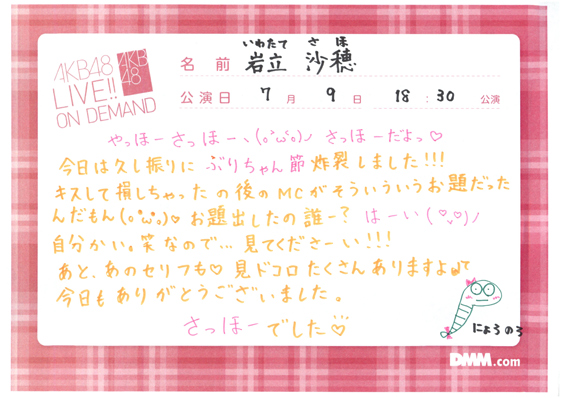 AKB48
LIVE!!
ON DEMAND
AKB
48
いわたて さほ
名前 岩立 沙穂
公演日 7月 9日 18:30 公演
やっほーさっほー、(๐°ω°๐)ノ さっほーだよっ♡
今日は久し振りに ぶりちゃん節 炸裂しました!!!
キスして損しちゃった の後のMCがそういういうお題だった
んだもん(๐°ω°๐)♡ お題出したの誰ー? はーい(♡ᵕ♡)ノ
自分かい。笑 なので… 見てくださーい!!!
あと、あのセリフも♡ 見ドコロたくさんありますよ
今日もありがとうございました。
さっほーでした♡
にょろのろ
DMM.com